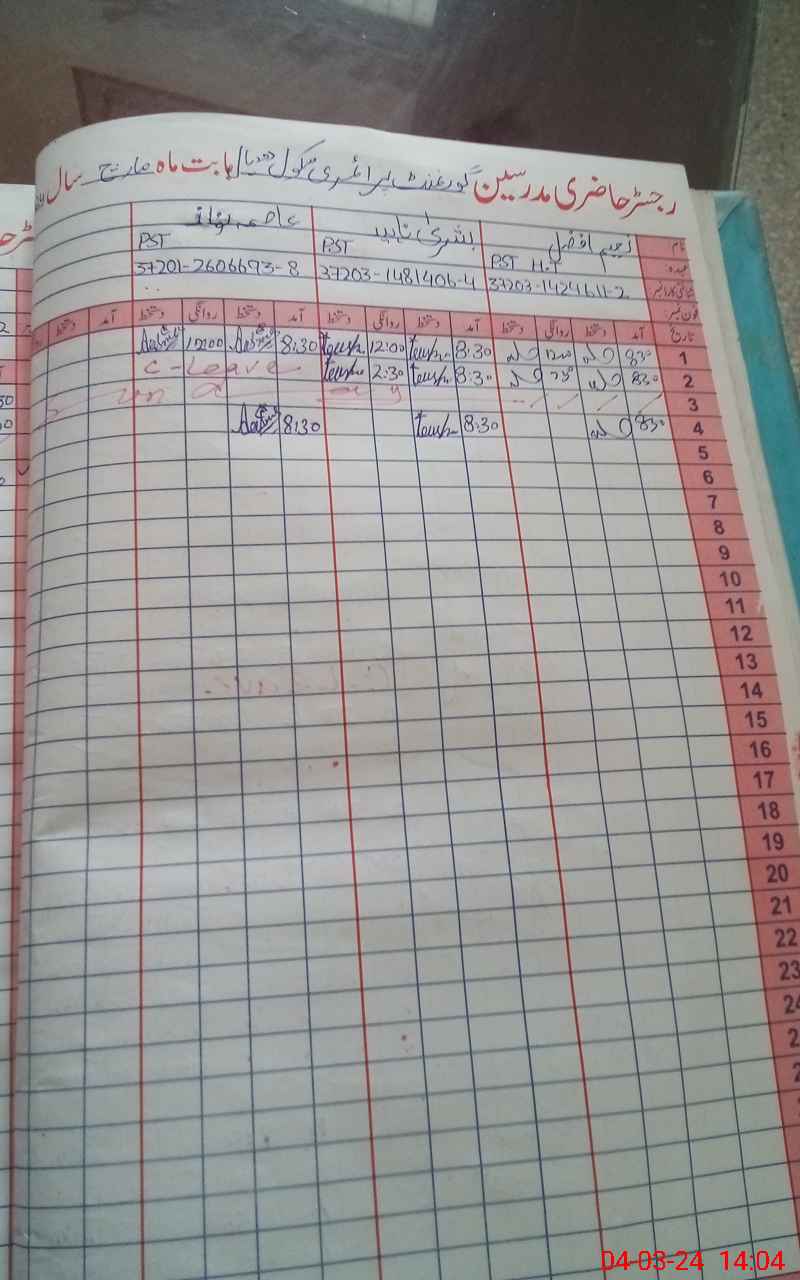 رجسٹر حاضری مدرسین گورنمنٹ پرائمری سکول بابت ماہ مارچ سال
نام زعیم افضل بشریٰ ناہید عاصمہ
عہدہ PST H.T PST PST
شناختی کارڈ نمبر 37203-1424611-2 37203-1481406-4 37201-2606693-8
فون نمبر
تاریخ آمد دستخط روانگی دستخط آمد دستخط روانگی دستخط آمد دستخط روانگی دستخط آمد دستخط
1 830 1200 8:30 12:00 8:30 12:00
2 830 230 8:30 2:30 C-Leave
3
4 830 8:30 8:30
5
6
7
8
9
10
11
12
13
14
15
16
17
18
19
20
21
22
23
04-03-24 14:04